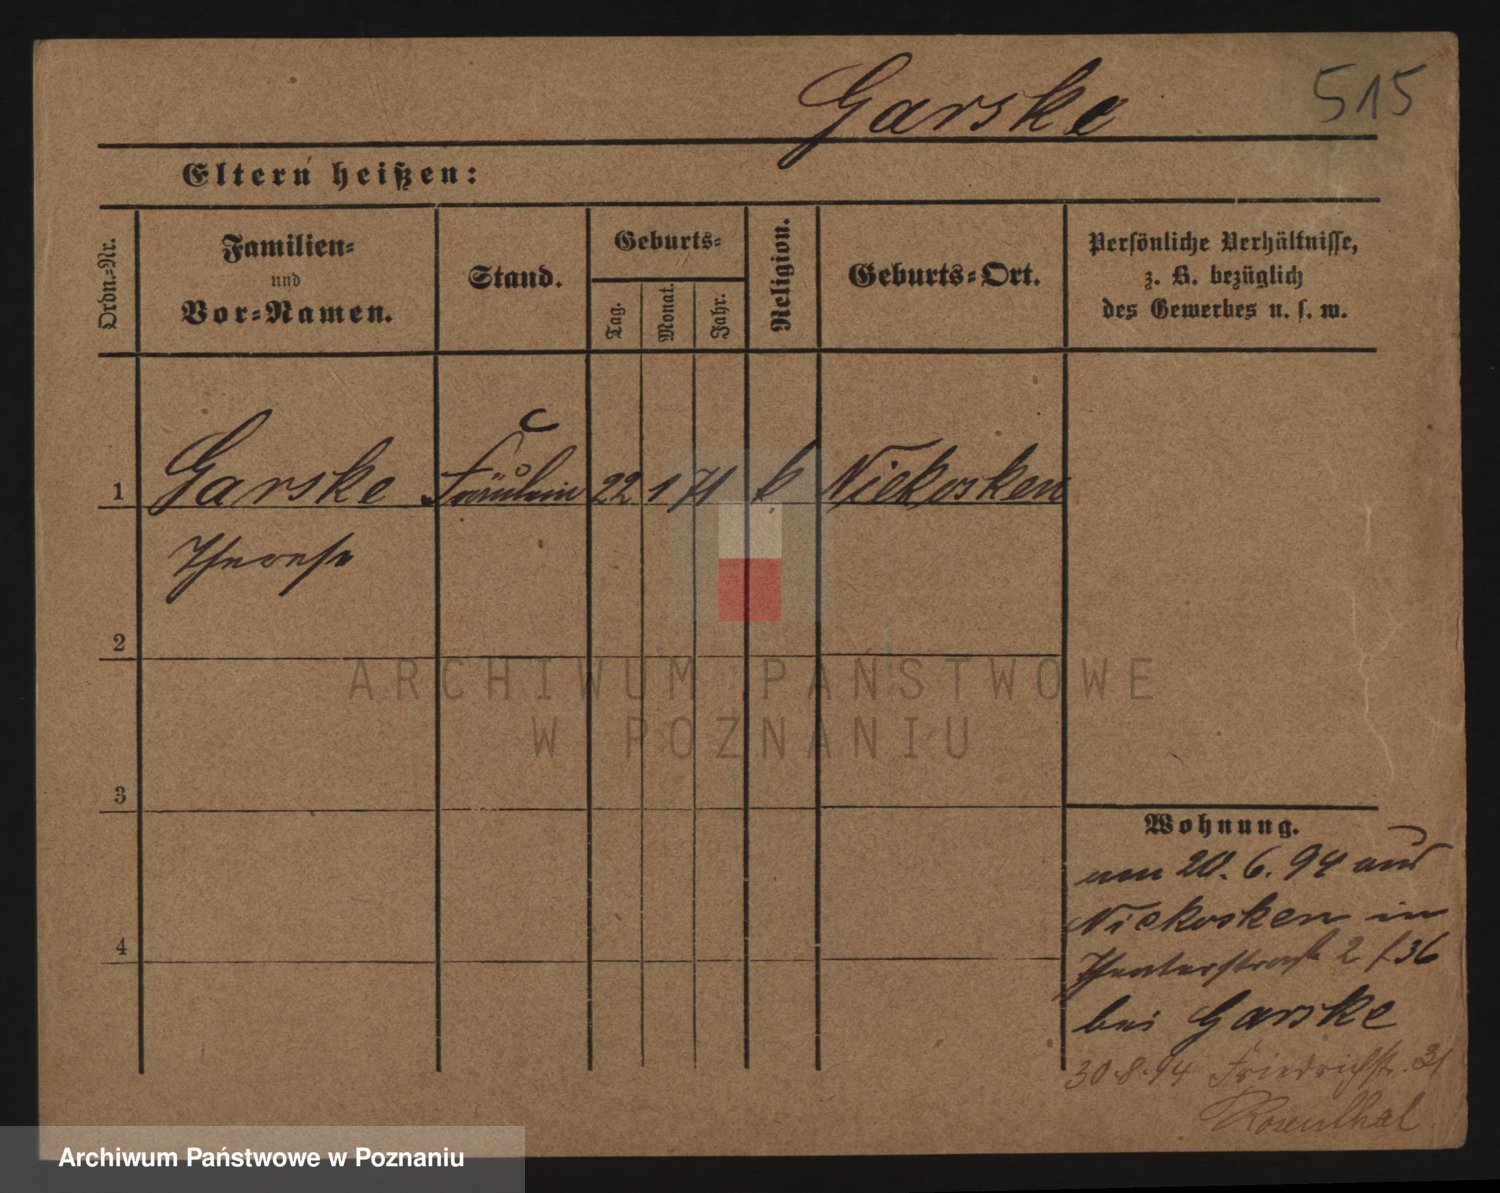 Garske
515
Eltern heißen:
Ordn.-Nr.
Familien-
und
Vor-Namen.
Stand.
Geburts-
Tag.
Monat.
Jahr.
Religion.
Geburts-Ort.
Persönliche Verhältnisse,
z. B. bezüglich
des Gewerbes u. s. w.
1 Garske Fräulein 22 1 71 k Niekosken
Therese
2
3
4
Wohnung.
am 20. 6. 94 aus
Niekosken in
Theaterstraße 2 f 36
bei Garske
30.8.94 Friedrichstr. 31
Rosenthal
ARCHIWUM PAŃSTWOWE
W POZNANIU
Archiwum Państwowe w Poznaniu